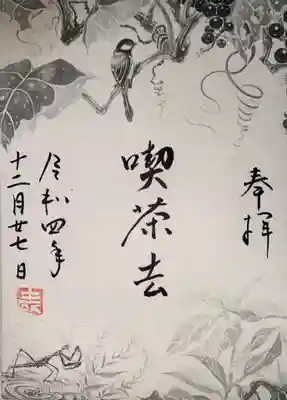 奉拝
喫茶去
令和四年
十二月廿七日